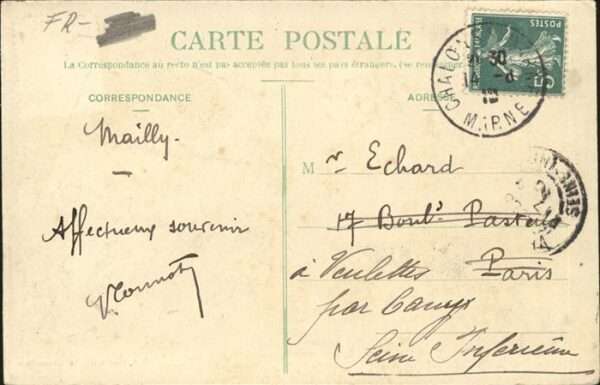 FR-
CARTE POSTALE
La Correspondance au recto n'est pas acceptée par tous les pays étrangers. (se renseigner
CORRESPONDANCE
ADRESSE
POSTES
30
14
MARNE
Mailly.
—
Affectueux souvenir
Mr Echard
17 Boulᵈ Pasteur
Paris
à Veulettes
par Cany
Seine Inferieure
SEINE-INF